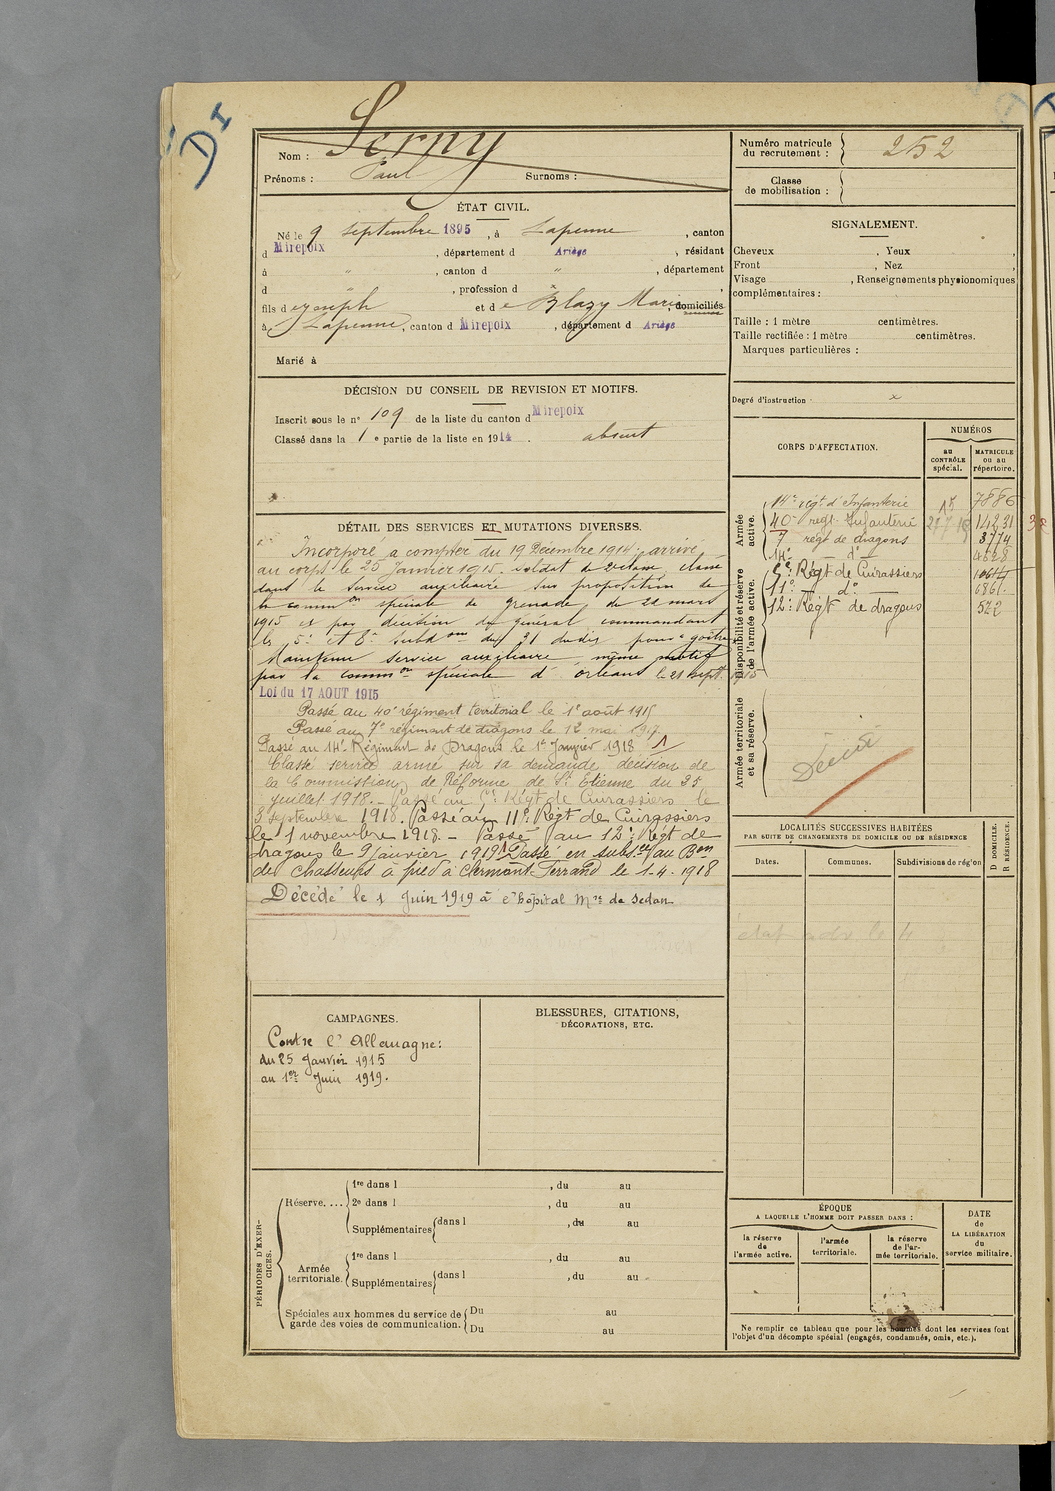 D I
Nom : Serny
Prénoms : Paul Surnoms :
Numéro matricule du recrutement : 252
Classe de mobilisation :
ÉTAT CIVIL.
Né le 9 septembre 1895, à Lapenne, canton
d Mirepoix, département d Ariège, résidant
à ", canton d ", département
d , profession d x,
fils d e Joseph et d e Blazy Marie, domiciliés
à Lapenne, canton d Mirepoix, département d Ariège
Marié à
SIGNALEMENT.
Cheveux , Yeux ,
Front , Nez ,
Visage , Renseignements physionomiques
complémentaires :
Taille : 1 mètre centimètres.
Taille rectifiée : 1 mètre centimètres.
Marques particulières :
Degré d'instruction x
DÉCISION DU CONSEIL DE REVISION ET MOTIFS.
Inscrit sous le n° 109 de la liste du canton d Mirepoix
Classé dans la 1 e partie de la liste en 1914. absent
DÉTAIL DES SERVICES ET MUTATIONS DIVERSES.
Incorporé à compter du 19 Décembre 1914, arrivé
au corps le 25 Janvier 1915. soldat de 2e classe, classé
dans le service auxiliaire sur proposition de
la common spéciale de Grenade du 22 mars
1915 et par décision du général commandant
les 5e et 6e subdons du 31 du dit pour "goitre"
Maintenu service auxiliaire même motif
par la common spéciale d'Orléans le 21 sept. 1915
Loi du 17 AOUT 1915
Passé au 40e régiment territorial le 1e août 1915
Passé au 7e régiment de dragons le 12 mai 1917.
Passé au 14e Régiment de Dragons le 1er Janvier 1918
Classé service armé sur sa demande décision de
la Commission de Réforme de St Etienne du 25
juillet 1918. - Passé au 5e Régt de Cuirassiers le
3 septembre 1918. Passé au 11e Régt de Cuirassiers
le 1 novembre 1918 - Passé au 12e Régt de
dragons le 9 janvier 1919. Passé en subsce au Bon
de chasseurs à pied à Clermont-Ferrand le 1-4-1918
Décédé le 1 Juin 1919 à l'hôpital Mre de Sedan
CORPS D'AFFECTATION.
NUMÉROS
au CONTRÔLE spécial.
MATRICULE ou au répertoire.
Armée active.
14e régt d'Infanterie 15 7886
40e régt Infanterie 14231
7 régt de dragons 3774
14e do 4628
Disponibilité et réserve de l'armée active.
5e Régt de Cuirassiers 10614
11e do 6861
12e Régt de dragons 522
Armée territoriale et sa réserve.
Décédé
LOCALITÉS SUCCESSIVES HABITÉES
PAR SUITE DE CHANGEMENTS DE DOMICILE OU DE RÉSIDENCE
Dates. Communes. Subdivisions de région
D DOMICILE. R RÉSIDENCE.
CAMPAGNES.
Contre l'Allemagne :
du 25 Janvier 1915
au 1er Juin 1919.
BLESSURES, CITATIONS,
DÉCORATIONS, ETC.
PÉRIODES D'EXERCICES.
Réserve.... 1re dans l , du au
2e dans l , du au
Supplémentaires dans l , du au
Armée territoriale. 1re dans l , du au
Supplémentaires dans l , du au
Spéciales aux hommes du service de garde des voies de communication. Du au
Du au
ÉPOQUE
A LAQUELLE L'HOMME DOIT PASSER DANS :
la réserve de l'armée active.
l'armée territoriale.
la réserve de l'armée territoriale.
DATE de LA LIBÉRATION du service militaire.
Ne remplir ce tableau que pour les hommes dont les services font
l'objet d'un décompte spécial (engagés, condamnés, omis, etc.).